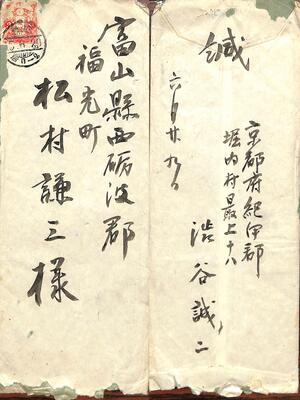 富山縣西礪波郡
福光町
松村謙三様
京都府紀伊郡
堀内村最上十八
澁谷誠二
六月廿九日
緘